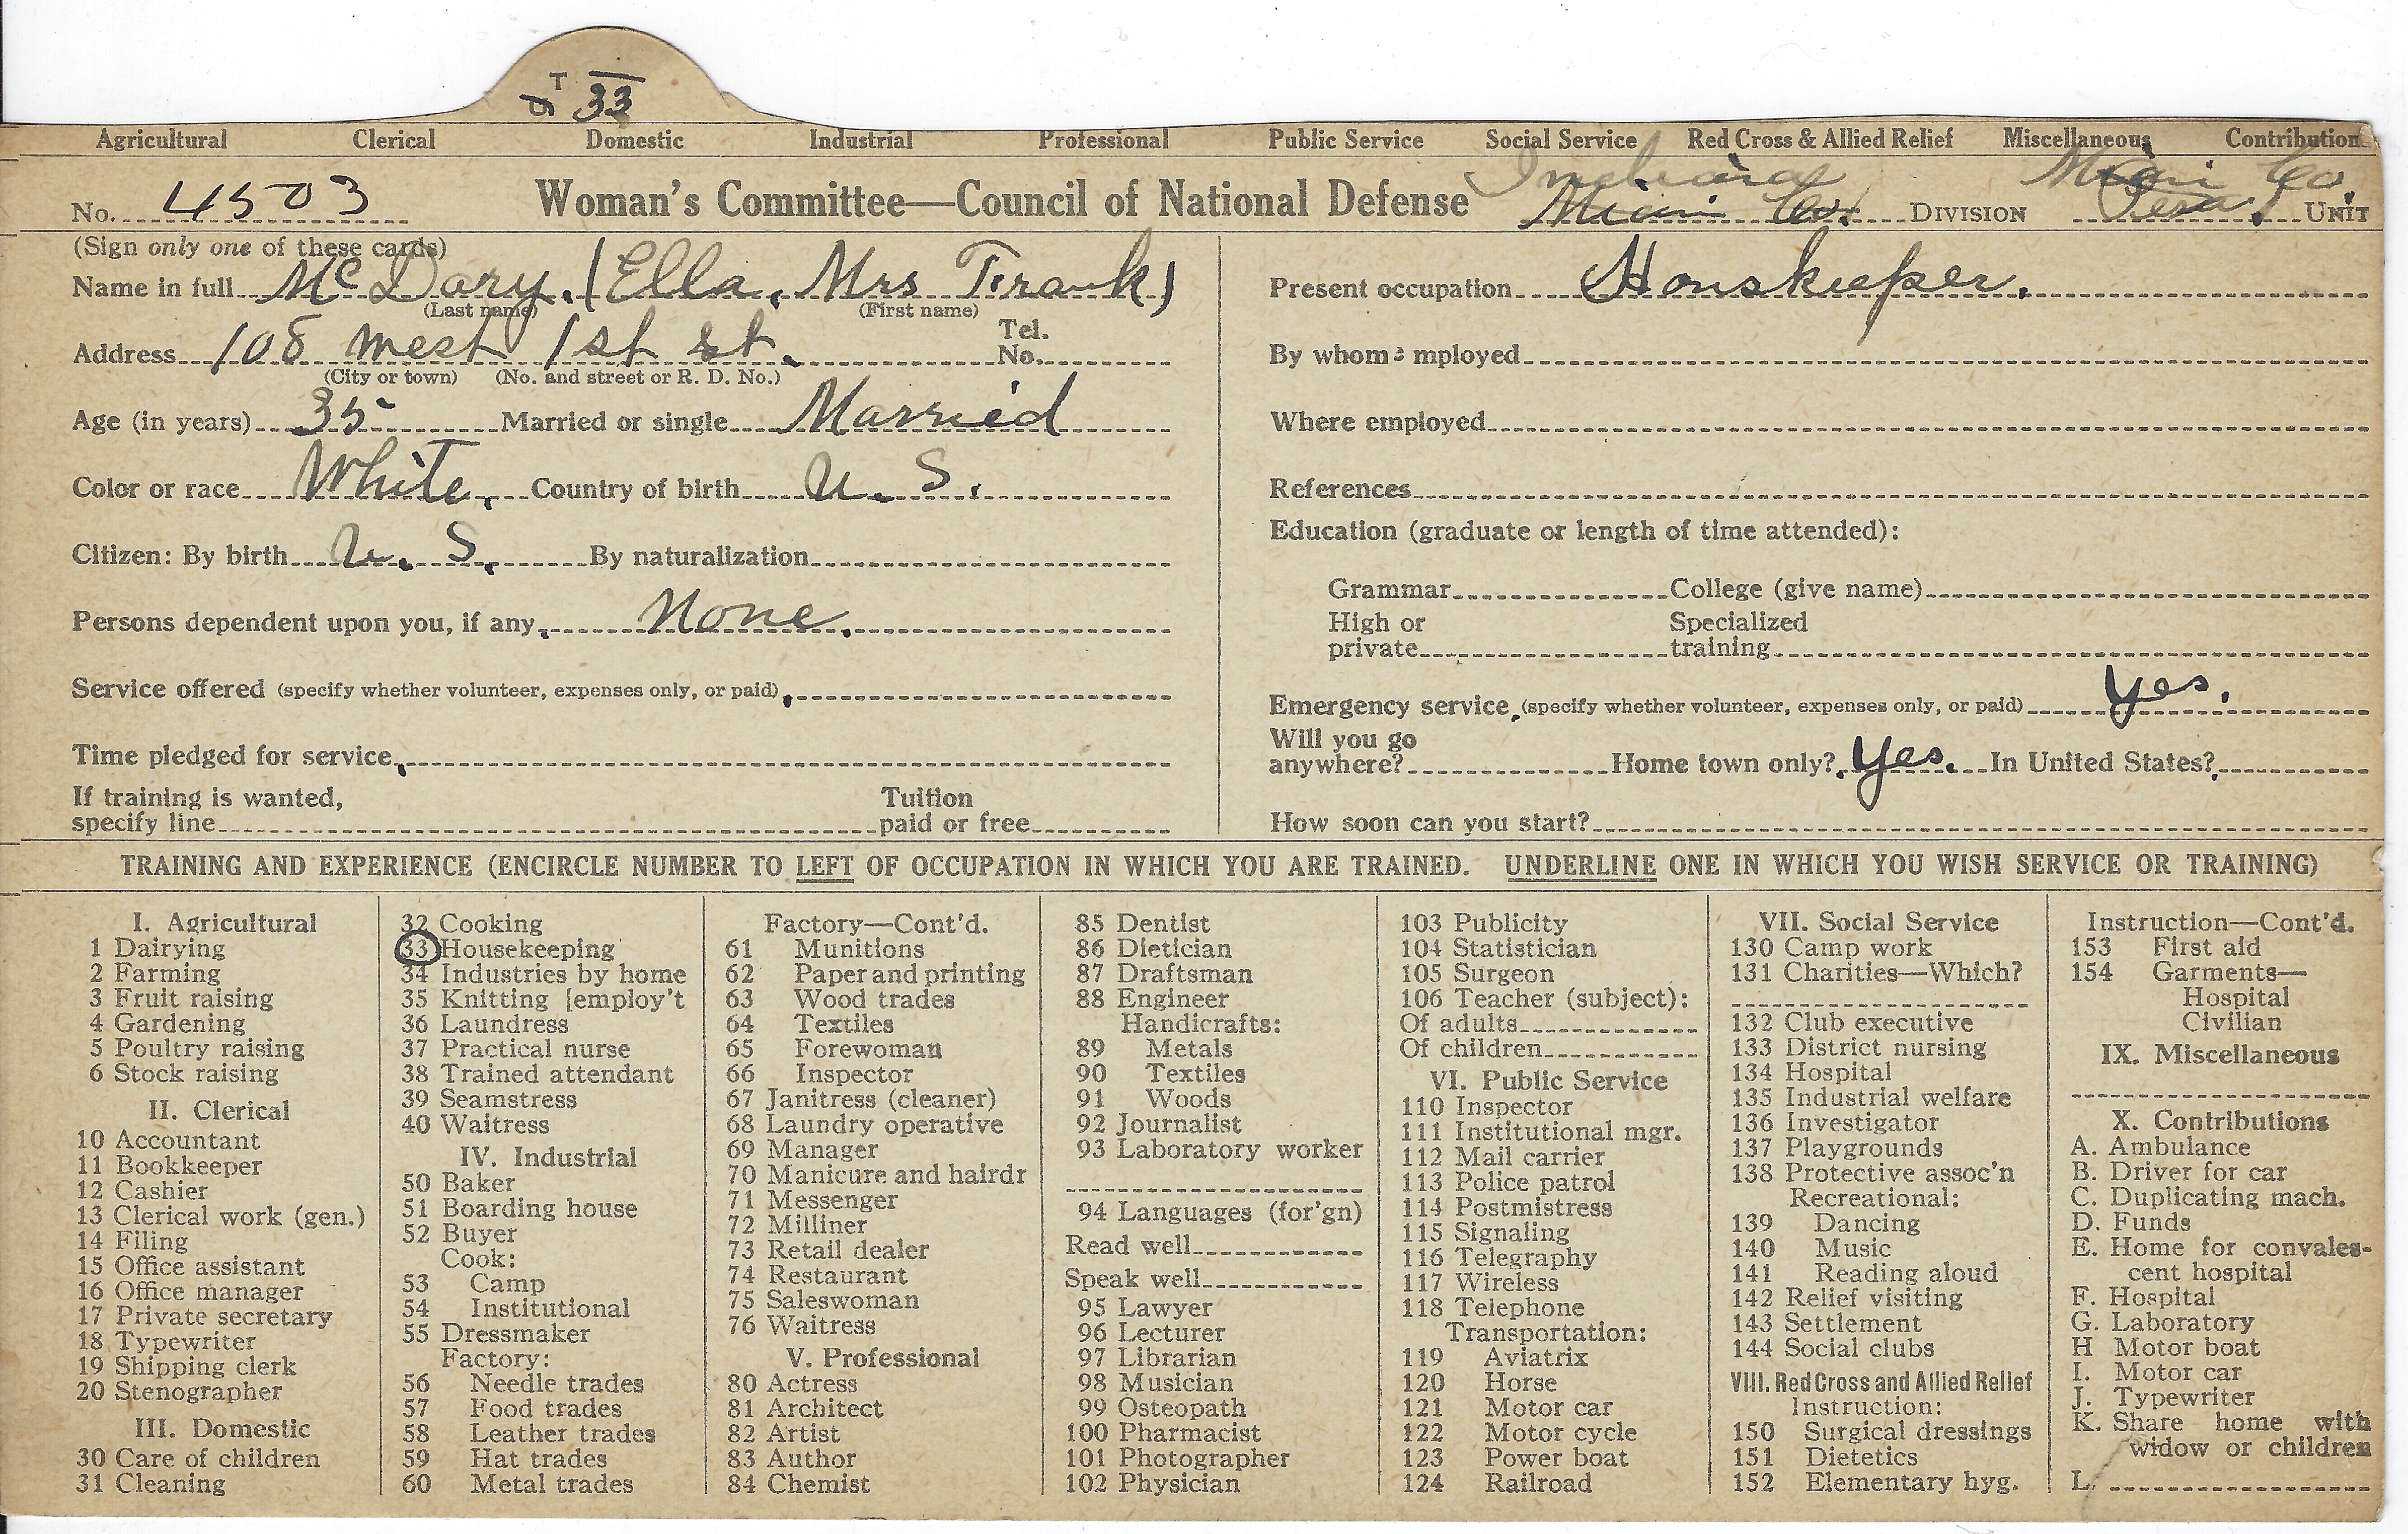 T 33
Agricultural Clerical Domestic Industrial Professional Public Service Social Service Red Cross & Allied Relief Miscellaneous Contribution
Indiana Miami Co.
No. 4503 Woman's Committee—Council of National Defense Miami Co. DIVISION Peru. UNIT
(Sign only one of these cards)
Name in full McDary. (Ella, Mrs Frank)
(Last name) (First name)
Present occupation Houskeeper.
Address 108 West 1st st. Tel. No.
(City or town) (No. and street or R. D. No.)
By whom employed
Age (in years) 35 Married or single Married
Where employed
Color or race White. Country of birth U. S.
References
Citizen: By birth U. S. By naturalization
Education (graduate or length of time attended):
Grammar College (give name)
Persons dependent upon you, if any, None.
High or private Specialized training
Service offered (specify whether volunteer, expenses only, or paid),
Emergency service, (specify whether volunteer, expenses only, or paid) Yes.
Time pledged for service,
Will you go anywhere? Home town only? Yes. In United States?
If training is wanted, specify line Tuition paid or free
How soon can you start?
TRAINING AND EXPERIENCE (ENCIRCLE NUMBER TO LEFT OF OCCUPATION IN WHICH YOU ARE TRAINED. UNDERLINE ONE IN WHICH YOU WISH SERVICE OR TRAINING)
I. Agricultural
1 Dairying
2 Farming
3 Fruit raising
4 Gardening
5 Poultry raising
6 Stock raising
II. Clerical
10 Accountant
11 Bookkeeper
12 Cashier
13 Clerical work (gen.)
14 Filing
15 Office assistant
16 Office manager
17 Private secretary
18 Typewriter
19 Shipping clerk
20 Stenographer
III. Domestic
30 Care of children
31 Cleaning
32 Cooking
33 Housekeeping
34 Industries by home
35 Knitting [employ't
36 Laundress
37 Practical nurse
38 Trained attendant
39 Seamstress
40 Waitress
IV. Industrial
50 Baker
51 Boarding house
52 Buyer
Cook:
53 Camp
54 Institutional
55 Dressmaker
Factory:
56 Needle trades
57 Food trades
58 Leather trades
59 Hat trades
60 Metal trades
Factory—Cont'd.
61 Munitions
62 Paper and printing
63 Wood trades
64 Textiles
65 Forewoman
66 Inspector
67 Janitress (cleaner)
68 Laundry operative
69 Manager
70 Manicure and hairdr
71 Messenger
72 Milliner
73 Retail dealer
74 Restaurant
75 Saleswoman
76 Waitress
V. Professional
80 Actress
81 Architect
82 Artist
83 Author
84 Chemist
85 Dentist
86 Dietician
87 Draftsman
88 Engineer
Handicrafts:
89 Metals
90 Textiles
91 Woods
92 Journalist
93 Laboratory worker
94 Languages (for'gn)
Read well
Speak well
95 Lawyer
96 Lecturer
97 Librarian
98 Musician
99 Osteopath
100 Pharmacist
101 Photographer
102 Physician
103 Publicity
104 Statistician
105 Surgeon
106 Teacher (subject):
Of adults
Of children
VI. Public Service
110 Inspector
111 Institutional mgr.
112 Mail carrier
113 Police patrol
114 Postmistress
115 Signaling
116 Telegraphy
117 Wireless
118 Telephone
Transportation:
119 Aviatrix
120 Horse
121 Motor car
122 Motor cycle
123 Power boat
124 Railroad
VII. Social Service
130 Camp work
131 Charities—Which?
132 Club executive
133 District nursing
134 Hospital
135 Industrial welfare
136 Investigator
137 Playgrounds
138 Protective assoc'n
Recreational:
139 Dancing
140 Music
141 Reading aloud
142 Relief visiting
143 Settlement
144 Social clubs
VIII. Red Cross and Allied Relief
Instruction:
150 Surgical dressings
151 Dietetics
152 Elementary hyg.
Instruction—Cont'd.
153 First aid
154 Garments—
Hospital
Civilian
IX. Miscellaneous
X. Contributions
A. Ambulance
B. Driver for car
C. Duplicating mach.
D. Funds
E. Home for convales-
cent hospital
F. Hospital
G. Laboratory
H Motor boat
I. Motor car
J. Typewriter
K. Share home with
widow or children
L.